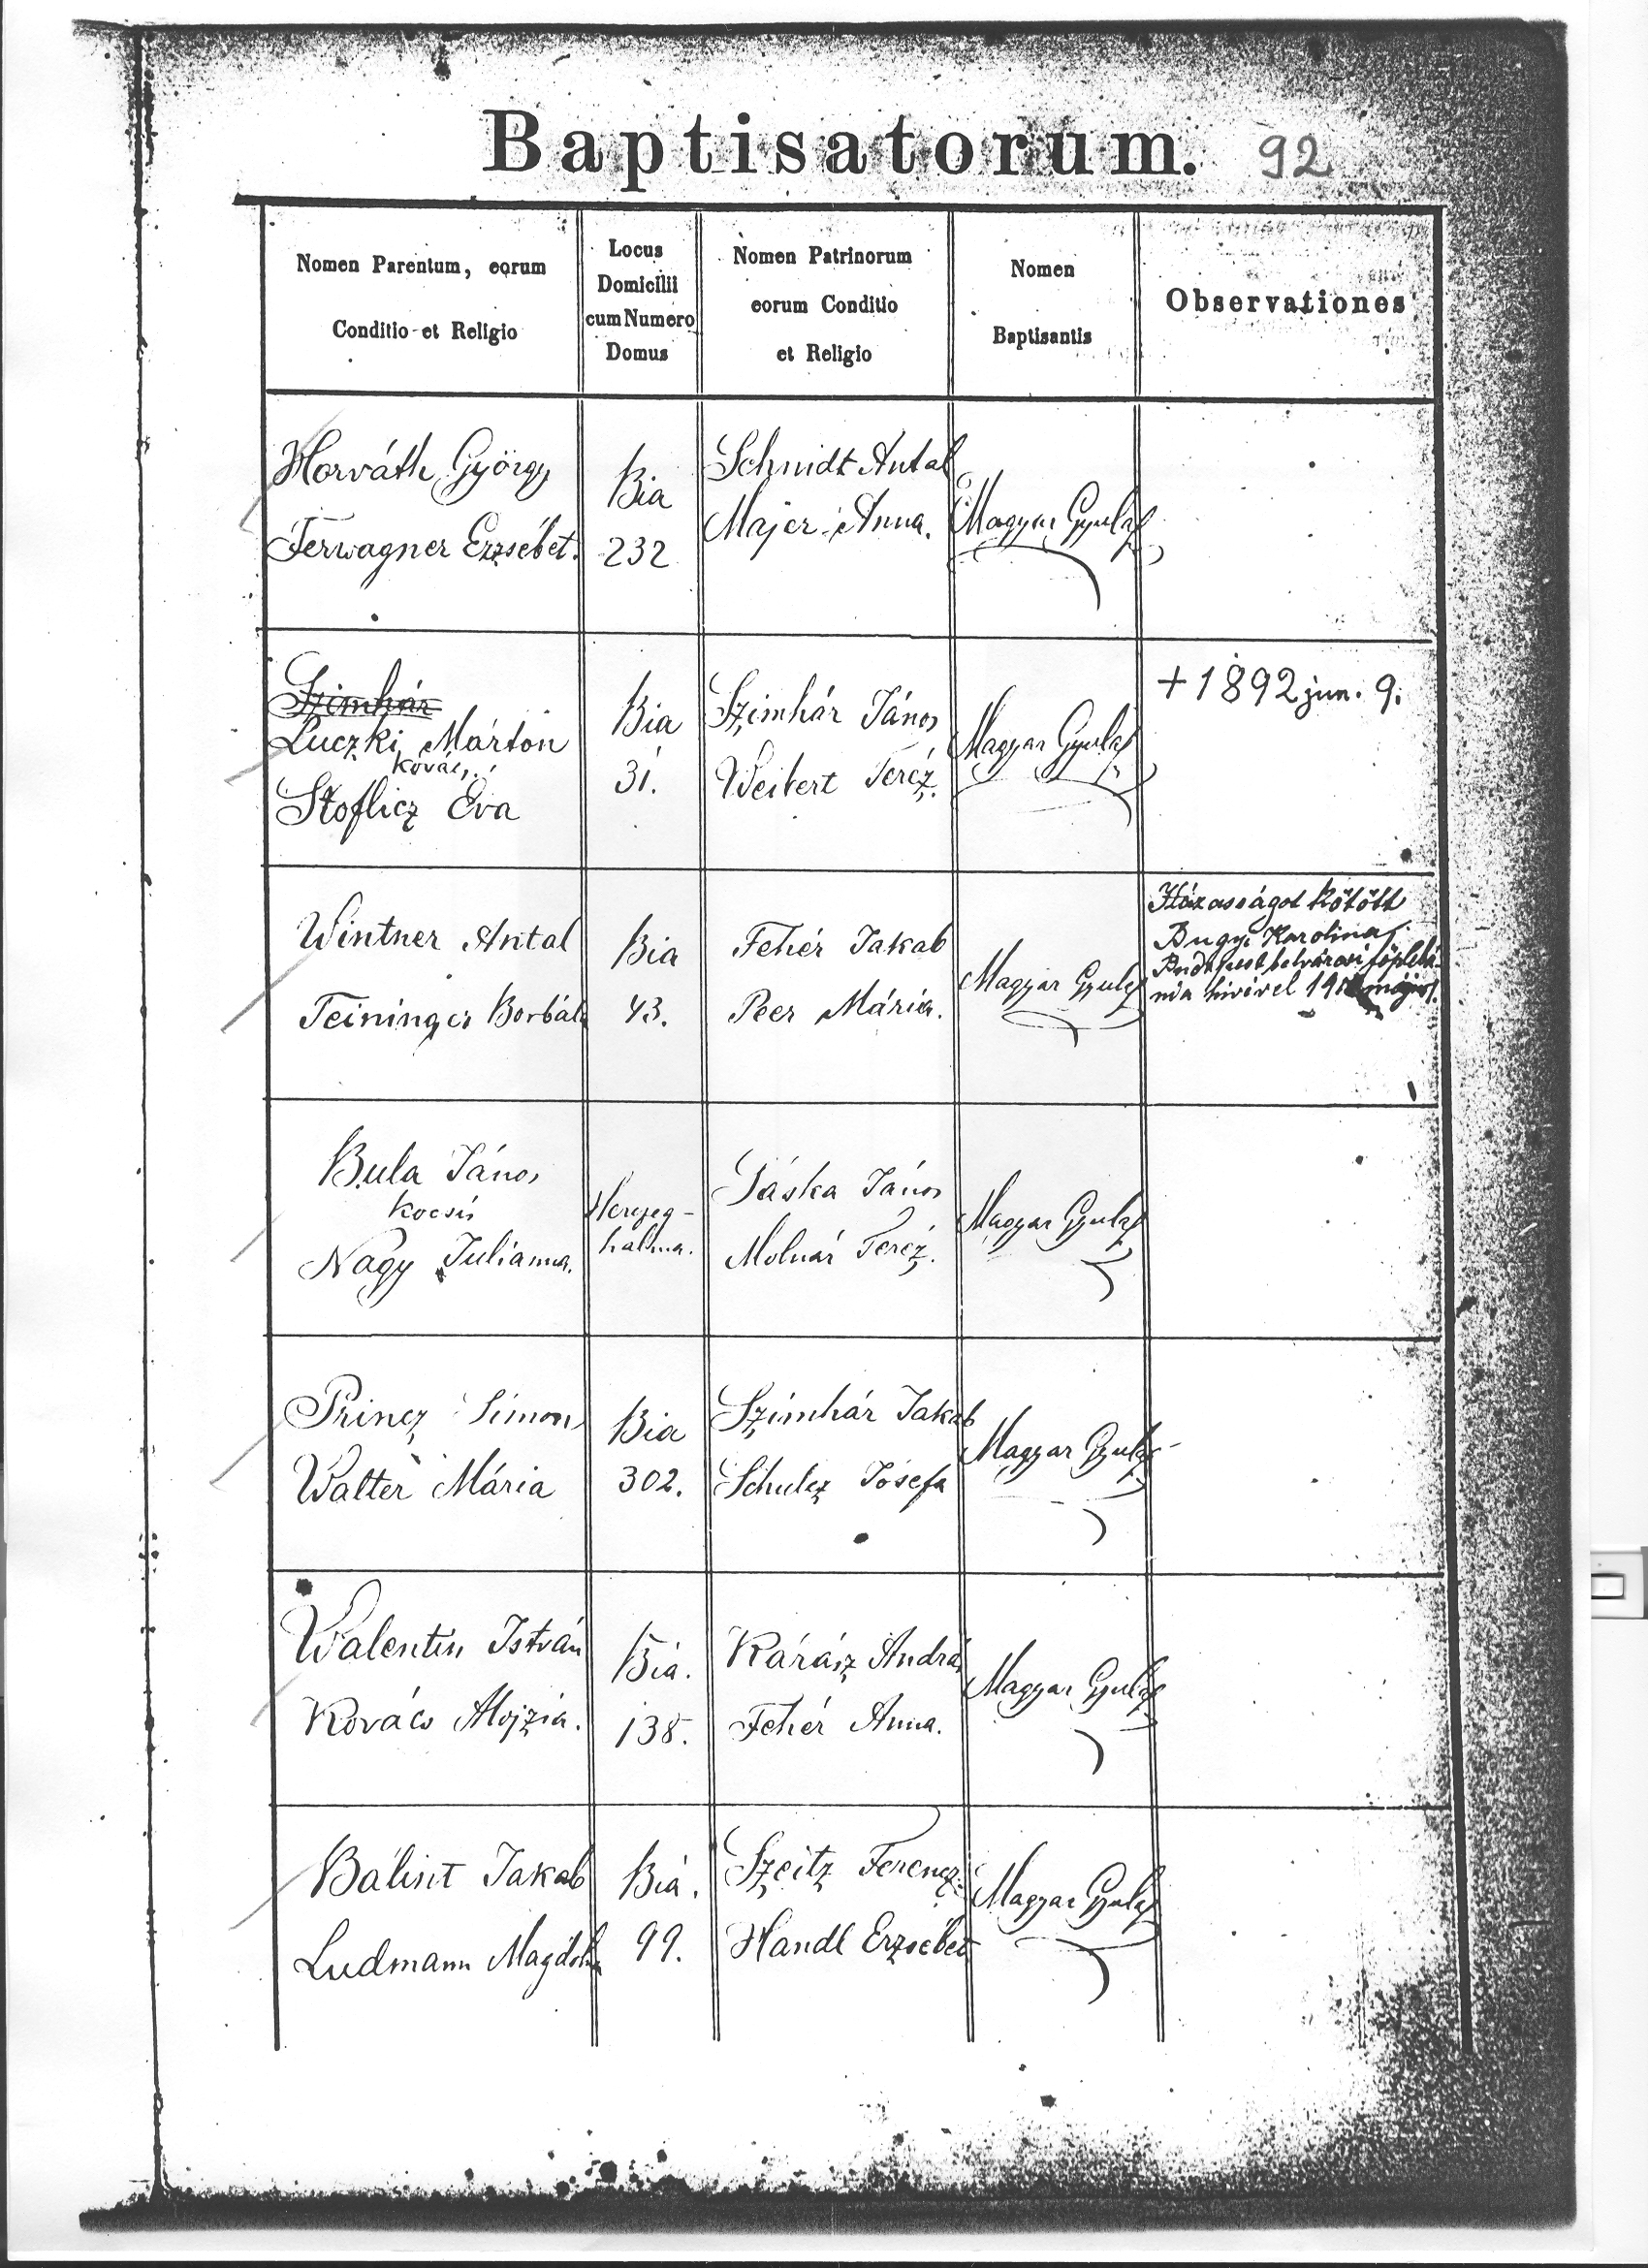 Baptisatorum. 92
Nomen Parentum, eorum
Conditio et Religio
Locus
Domicilii
cum Numero
Domus
Nomen Patrinorum
eorum Conditio
et Religio
Nomen
Baptisantis
Observationes
Horváth György
Ferwagner Erzsébet.
Bia
232
Schmidt Antal
Majer Anna.
Magyar Gyula
Szimhár
Luczki Márton
kovács
Stoflicz Éva
Bia
31.
Szimhár János
Weibert Teréz.
Magyar Gyula
+ 1892 jun. 9.
Wintner Antal
Teininger Borbála
Bia
43.
Fehér Jakab
Peer Mária.
Magyar Gyula
Házasságot kötött
Bugyi Karolina
Budapest belvárosi főplébá
nia hívével
Bula János
kocsis
Nagy Julianna.
Herczeg-
halma.
Táska János
Molnár Teréz.
Magyar Gyula
Princz Simon
Walter Mária
Bia
302.
Szimhár Jakab
Schulcz Jósefa
Magyar Gyula
Walentin István
Kovács Alojzia.
Bia.
138.
Kárász András
Fehér Anna.
Magyar Gyula
Bálint Jakab
Ludmann Magdolna
Bia.
99.
Szeitz Ferencz
Handl Erzsébet
Magyar Gyula